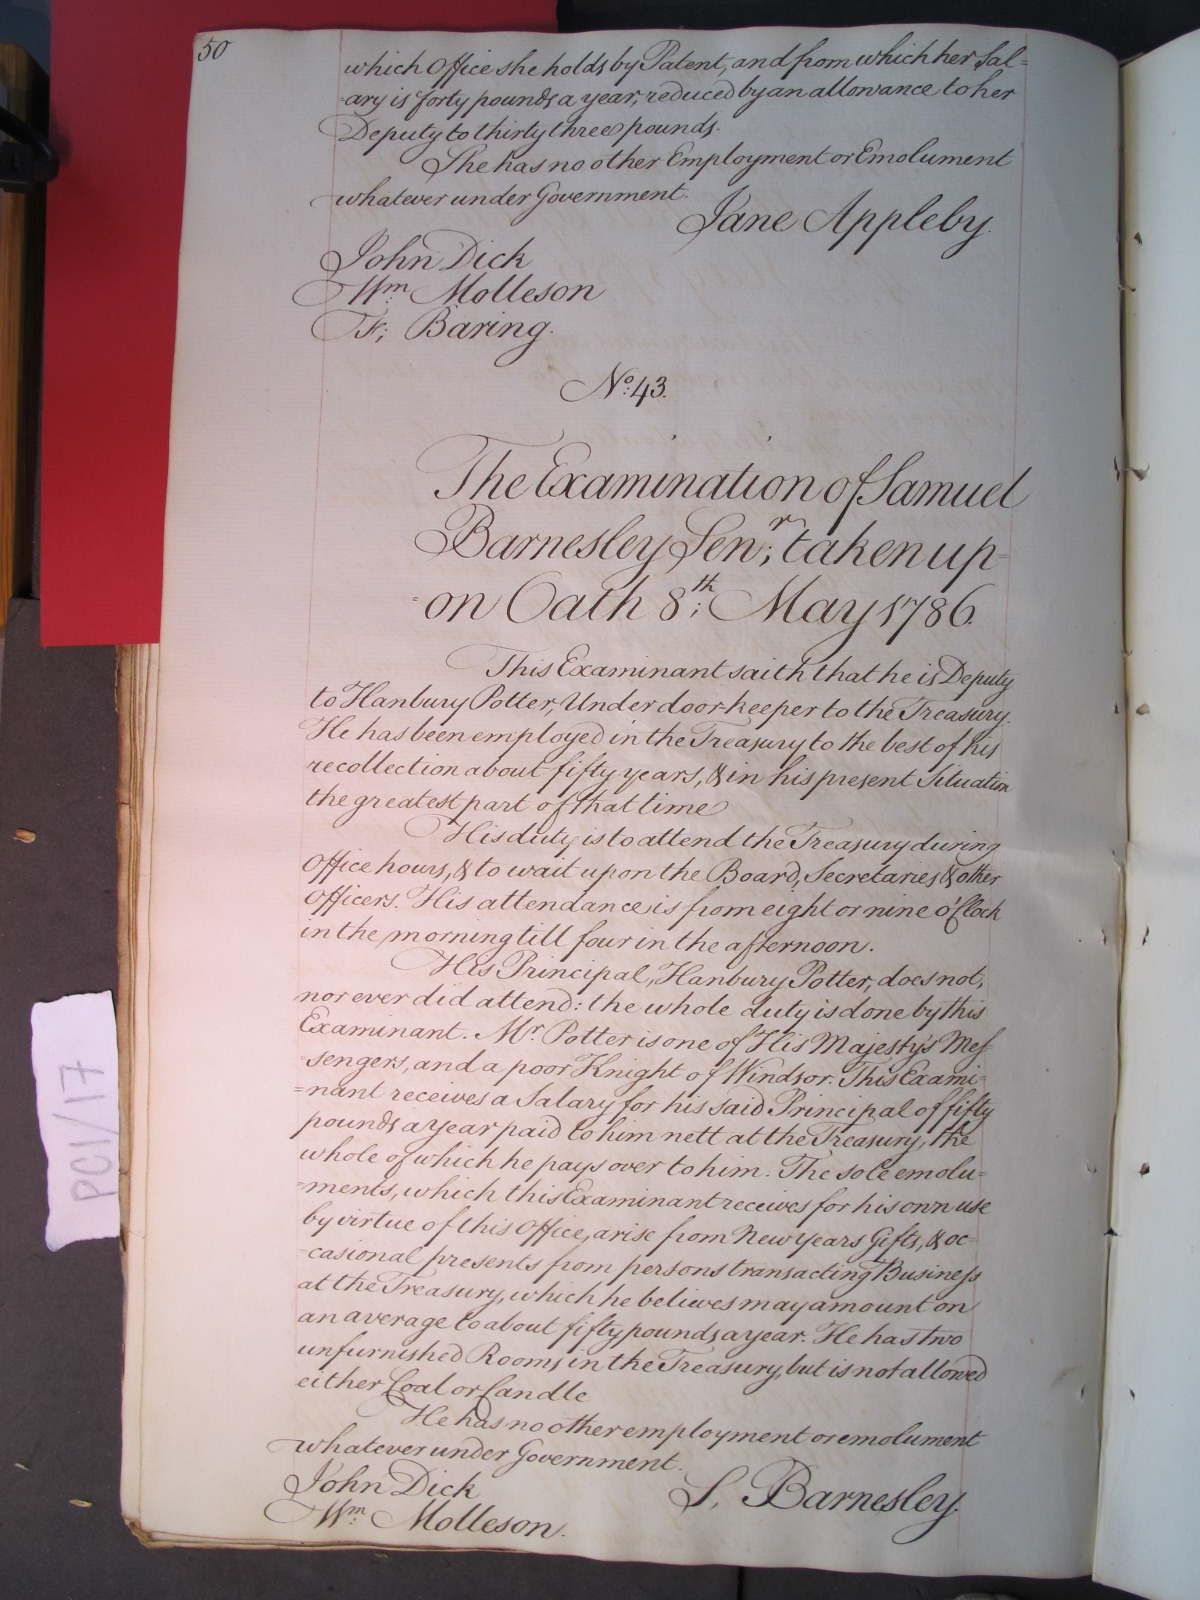 50
which Office she holds by Patent, and from which her Sal=
=ary is forty pounds a year, reduced by an allowance to her
Deputy to thirty three pounds.
She has no other Employment or Emolument
whatever under Government.
Jane Appleby.
John Dick
Wm: Molleson
F; Baring.
No: 43.
The Examination of Samuel
Barnesley Senr; taken up=
=on Oath 8th; May 1786.
This Examinant saith that he is Deputy
to Hanbury Potter, Under door-keeper to the Treasury.
He has been employed in the Treasury to the best of his
recollection about fifty years, & in his present Situation
the greatest part of that time
His duty is to attend the Treasury during
Office hours, & to wait upon the Board, Secretaries & other
Officers. His attendance is from eight or nine o'Clock
in the morning till four in the afternoon.
His Principal, Hanbury Potter, does not,
nor ever did attend: the whole duty is done by this
Examinant. Mr. Potter is one of His Majesty's Mes=
=sengers, and a poor Knight of Windsor. This Exami=
=nant receives a Salary for his said Principal of fifty
pounds a year paid to him nett at the Treasury, the
whole of which he pays over to him. The sole emolu=
=ments, which this Examinant receives for his own use
by virtue of this Office, arise from New years Gifts, & oc=
=casional presents from persons transacting Business
at the Treasury, which he believes may amount on
an average to about fifty pounds a year. He has two
unfurnished Rooms in the Treasury, but is not allowed
either Coal or Candle
He has no other employment or emolument
whatever under Government.
S, Barnesley.
John Dick
Wm: Molleson.
PC1/17